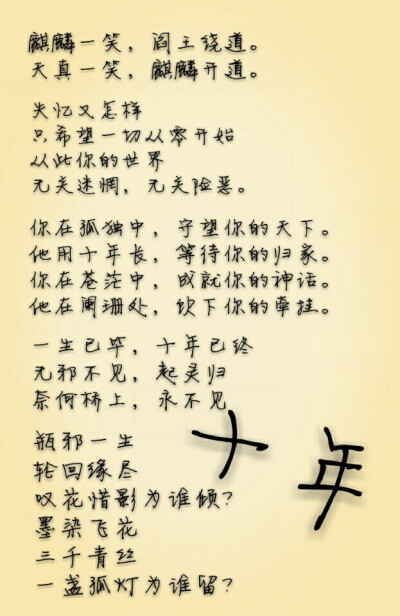 麒麟一笑，阎王绕道。
天真一笑，麒麟开道。
失忆又怎样
只希望一切从零开始
从此你的世界
无关迷惘，无关险恶。
你在孤独中，守望你的天下。
他用十年长，等待你的归家。
你在苍茫中，成就你的神话。
他在阑珊处，饮下你的牵挂。
一生已毕，十年已终
无邪不见，起灵归
奈何桥上，永不见
瓶邪一生
轮回缘尽
叹花惜影为谁倾？
墨染飞花
三千青丝
一盏孤灯为谁留？
十年